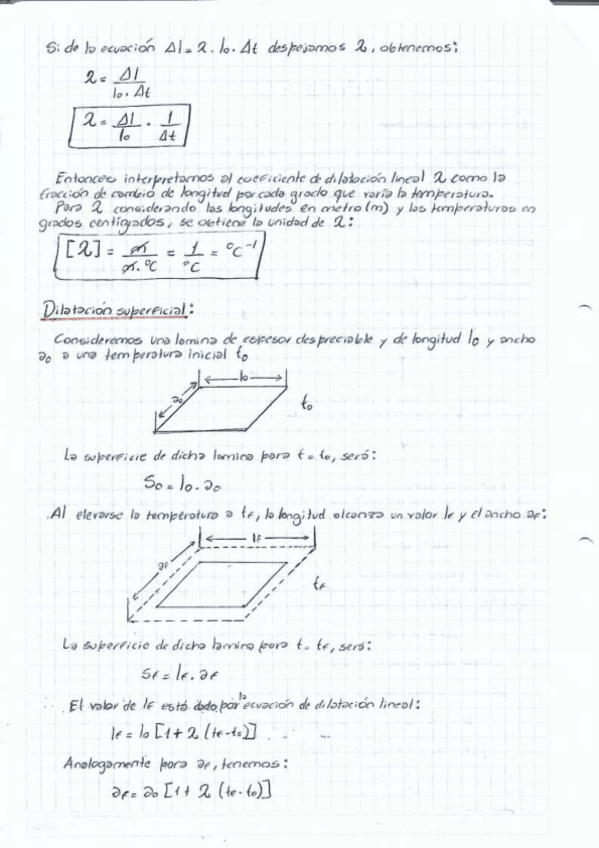 Si de la ecuación Δl = λ . lo . Δt despejamos λ, obtenemos:
λ = Δl / lo . Δt
λ = Δl / lo . 1 / Δt
Entonces interpretamos al coeficiente de dilatación lineal λ como la
fracción de cambio de longitud por cada grado que varía la temperatura.
Para λ considerando las longitudes en metro (m) y las temperaturas en
grados centígrados, se obtiene la unidad de λ:
[λ] = m / m . °C = 1 / °C = °C⁻¹
Dilatación superficial:
Consideremos una lamina de espesor despreciable y de longitud lo y ancho
ao a una temperatura inicial to
lo
ao
to
La superficie de dicha lamina para t = to, será:
So = lo . ao
Al elevarse la temperatura a tf, la longitud alcanza un valor lf y el ancho af:
lf
af
tf
La superficie de dicha lamina para t = tf, será:
Sf = lf . af
El valor de lf está dado por la ecuación de dilatación lineal:
lf = lo [1 + λ (tf - to)]
Analogamente para af, tenemos:
af = ao [1 + λ (tf - to)]